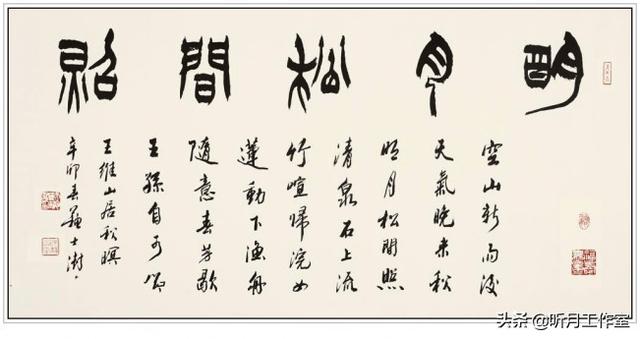 明月松間照
空山新雨後
天氣晚來秋
明月松間照
清泉石上流
竹喧歸浣女
蓮動下漁舟
隨意春芳歇
王孫自可留
王維山居秋暝
辛卯春蘇士澍
头条 @昕月工作室